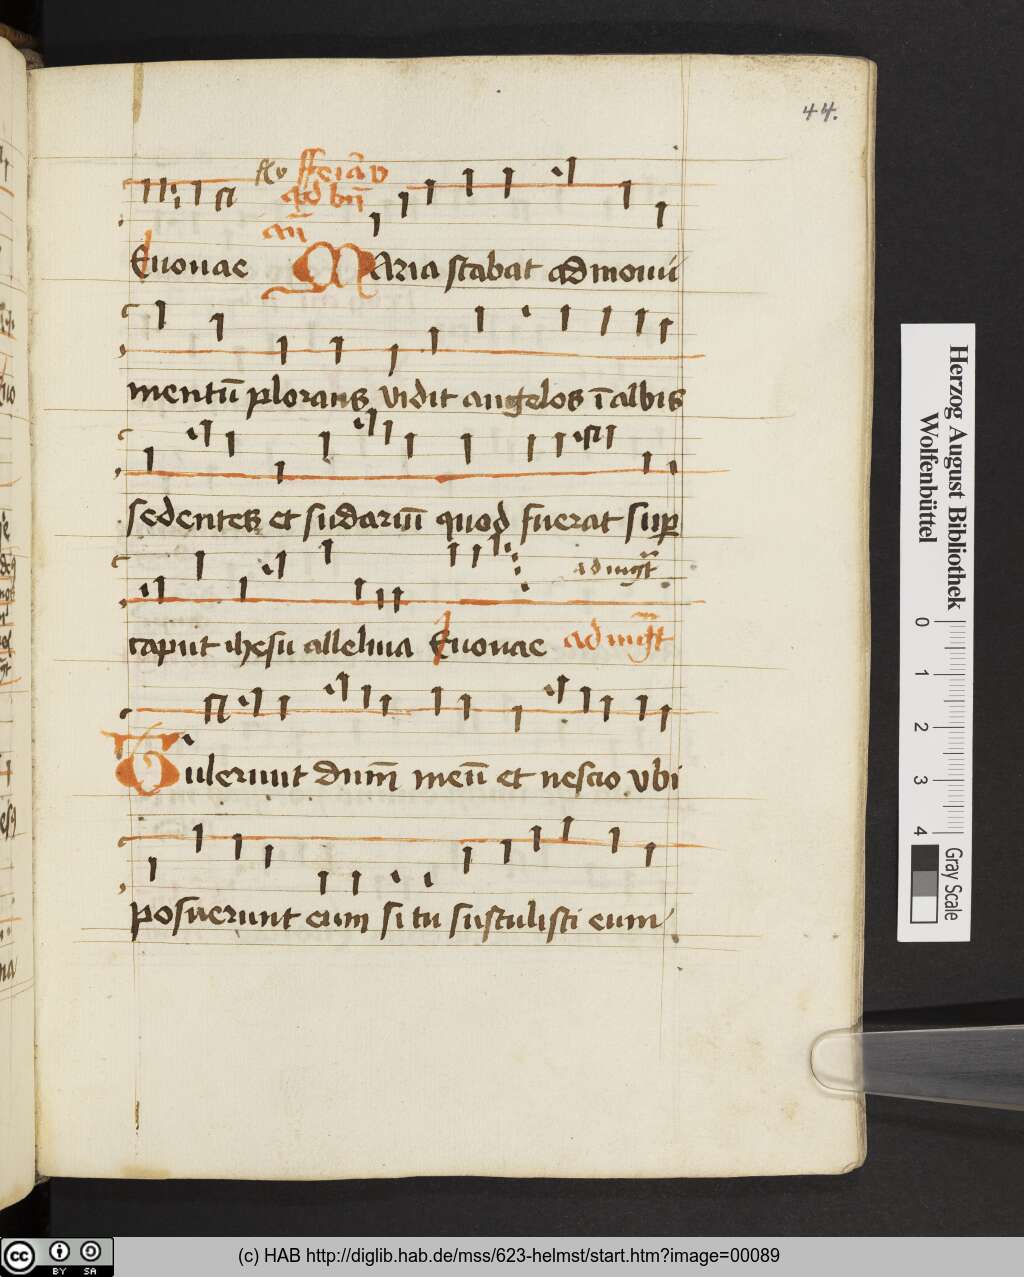 44.
fferiā v
ad bn̄
an̄
Euouae MAria stabat ad monu
mentū plorans vidit angelos ī albis
sedentes et sudariū quod fuerat sup
ad mgt
caput ihesu alleluia Euouae ad mgt
Tulerunt dnm̄ meū et nescio vbi
posuerunt eum si tu sustulisti eum
Herzog August Bibliothek
Wolfenbüttel
0 1 2 3 4
Gray Scale
cc BY SA
(c) HAB http://diglib.hab.de/mss/623-helmst/start.htm?image=00089